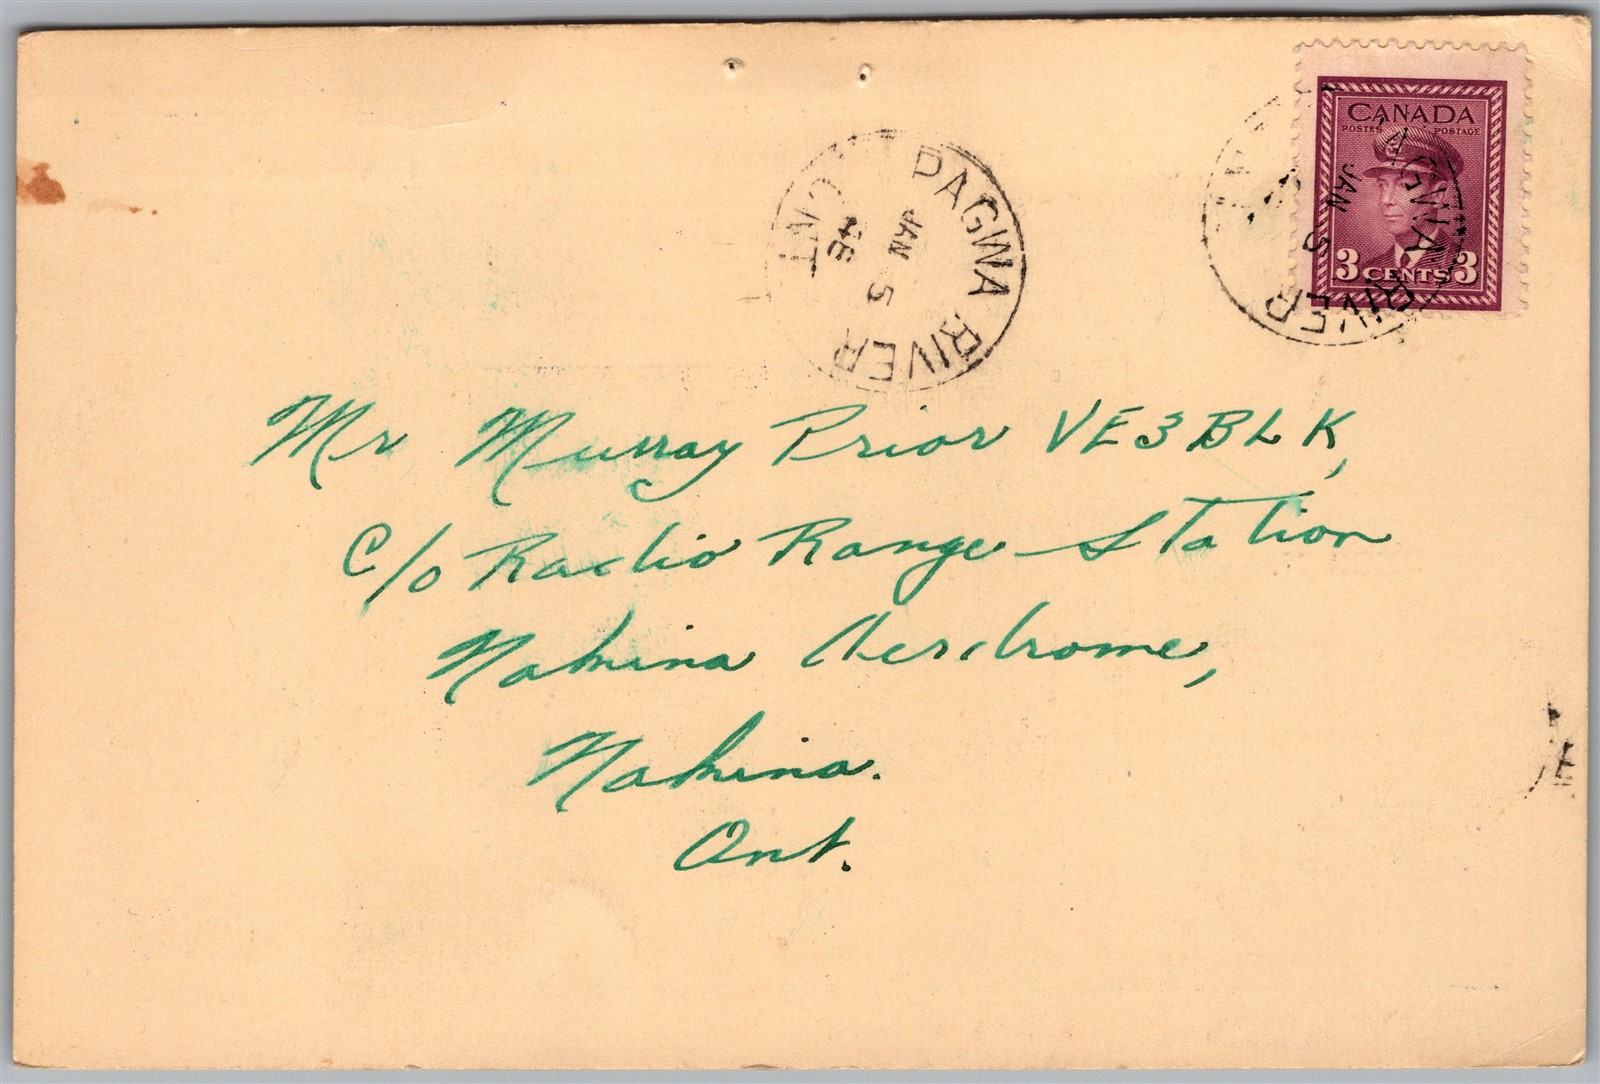 CANADA
POSTES POSTAGE
3 CENTS 3
PAGWA RIVER
ONT
JAN 5
46
PAGWA RIVER
JAN 5
Mr Murray Prior VE3BLK,
c/o Radio Range Station
Nakina Aerodrome,
Nakina.
Ont.